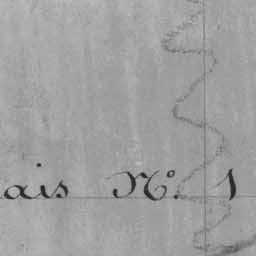 ais Nº. 1